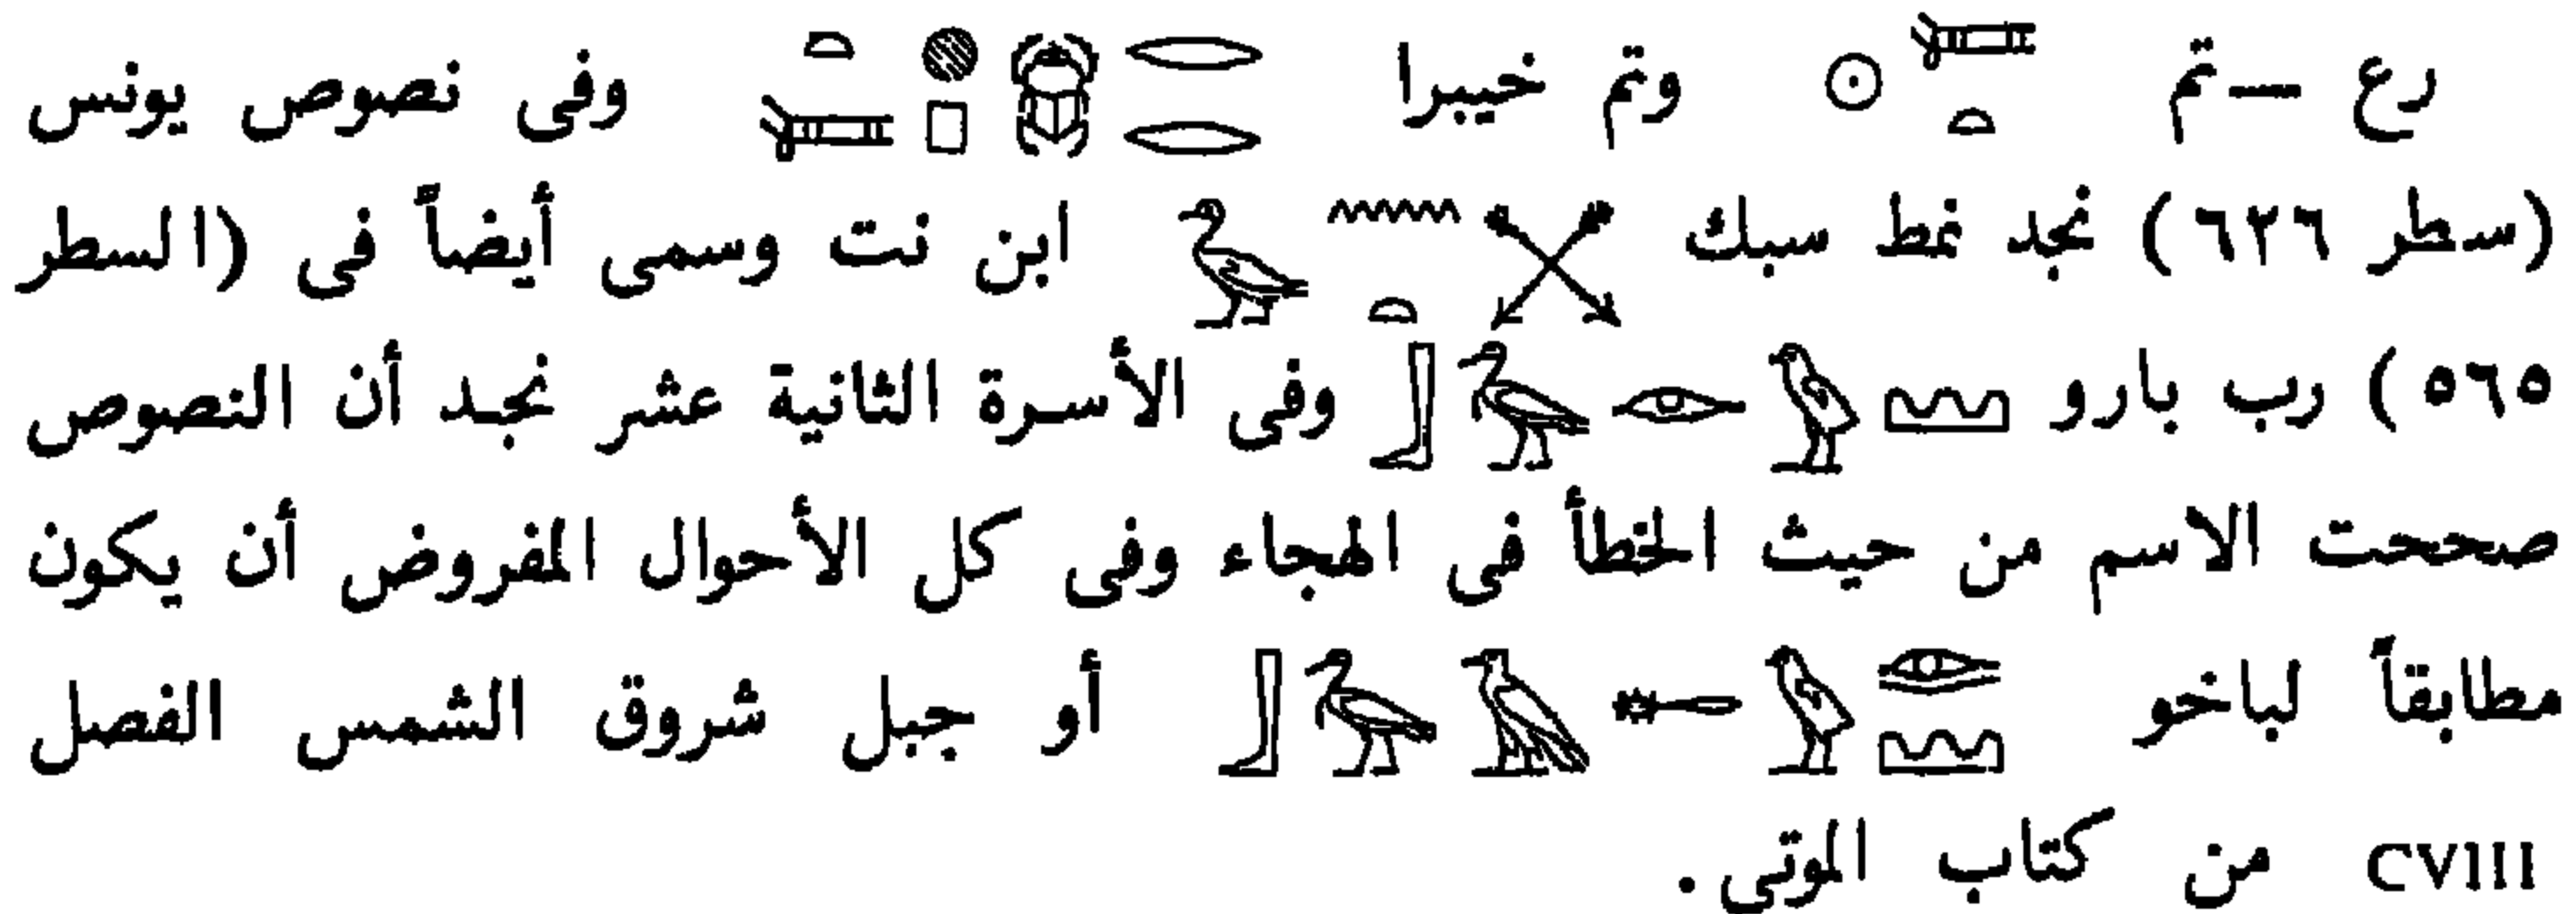 رع —تم وتم خيبرا وفى نصوص يونس
(سطر ٦٢٦) نجد نمط سبك ابن نت وسمى أيضاً فى (السطر
٥٦٥) رب بارو وفى الأسرة الثانية عشر نجد أن النصوص
صححت الاسم من حيث الخطأ فى الهجاء وفى كل الأحوال المفروض أن يكون
مطابقاً لباخو أو جبل شروق الشمس الفصل
CVIII من كتاب الموتى .